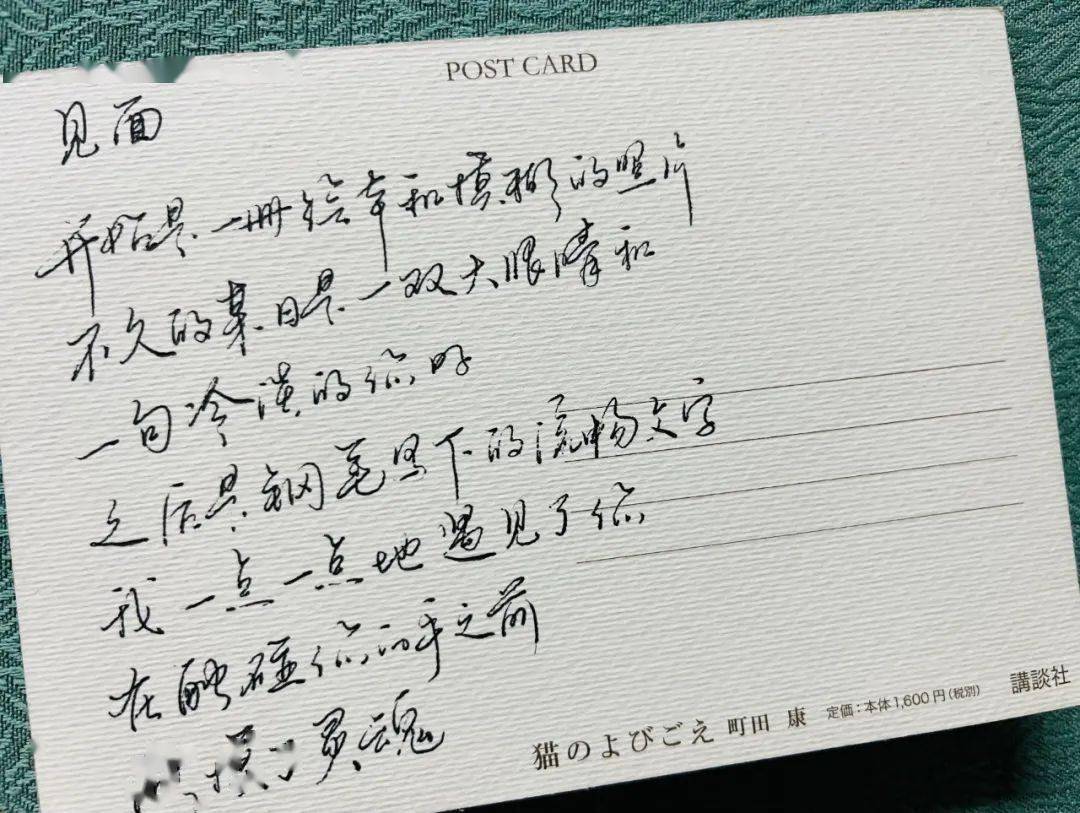 POST CARD
见面
开始是一册绘本和模糊的照片
不久的某日是一双大眼睛和
一句冷漠的你好
之后是钢笔写下的流畅文字
我一点一点地遇见了你
在触碰你的手之前
摸了灵魂
猫のよびごえ 町田 康 定価：本体1,600円（税別） 講談社